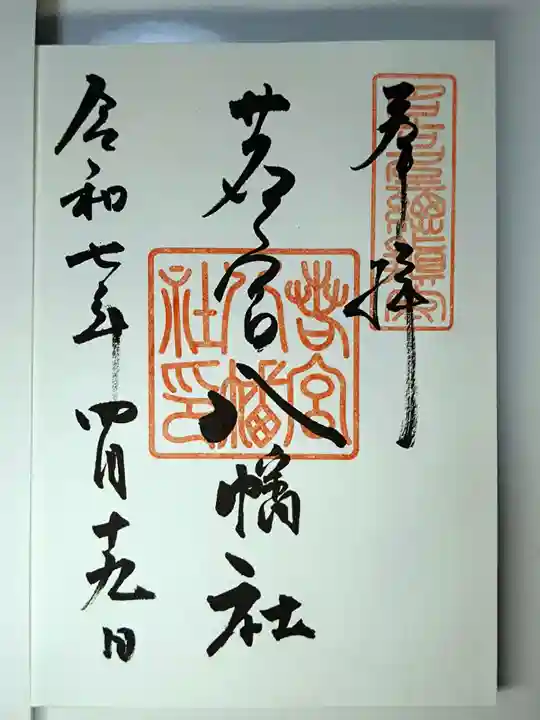 奉拝
若宮八幡社
若宮八幡社印
令和七年四月十九日